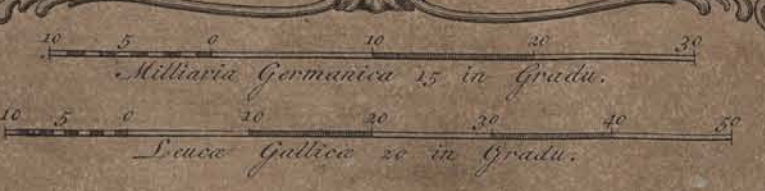 10 5 0 10 20 30
Milliaria Germanica 15 in Gradu.
10 5 0 10 20 30 40 50
Leucæ Gallicæ 20 in Gradu.